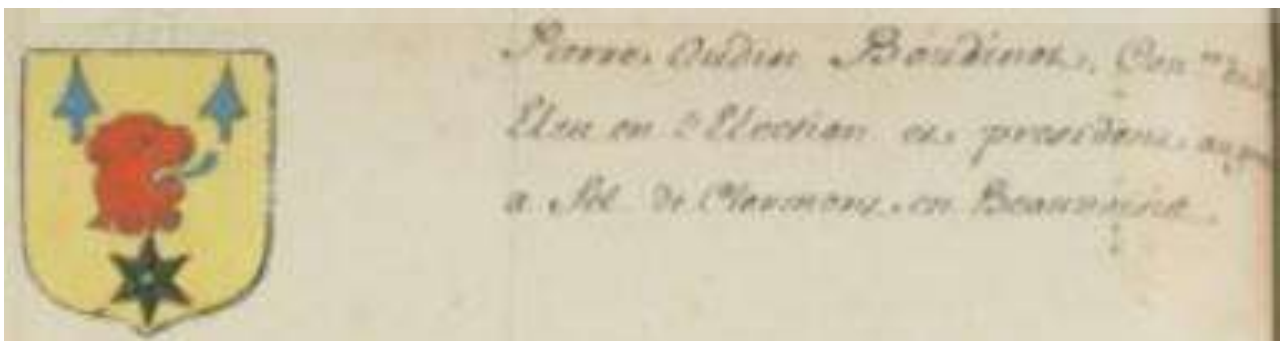 Pierre Oudin Boudinot, Con.er du
Eleu en l'Election et president au
a Sel de Clermont en Beauvoisis.